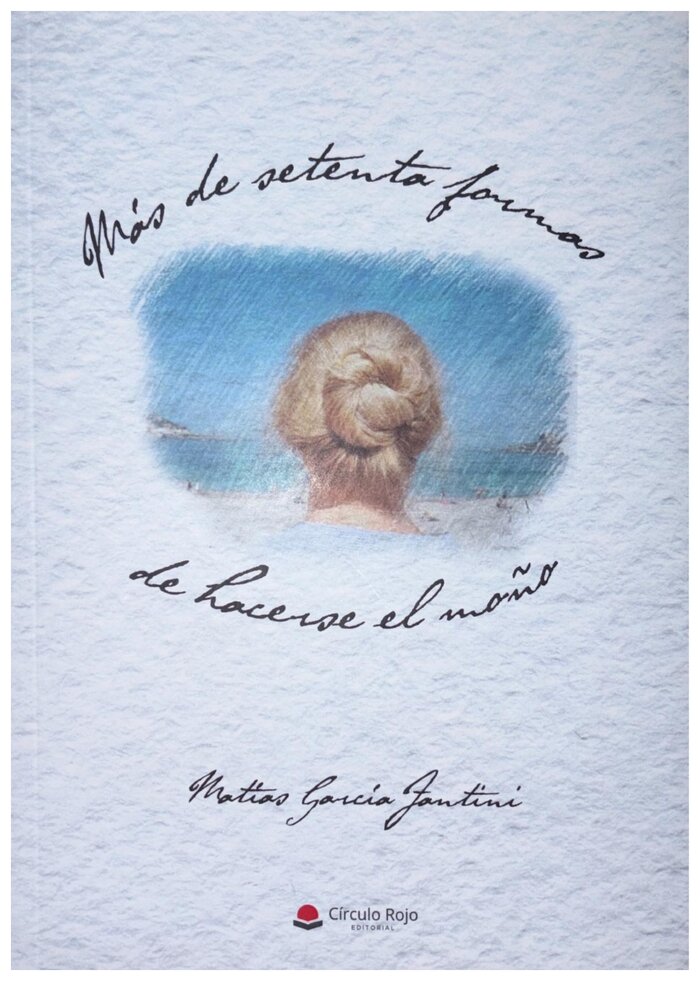 Más de setenta formas
de hacerse el moño
Matías García Fantini
Círculo Rojo
EDITORIAL